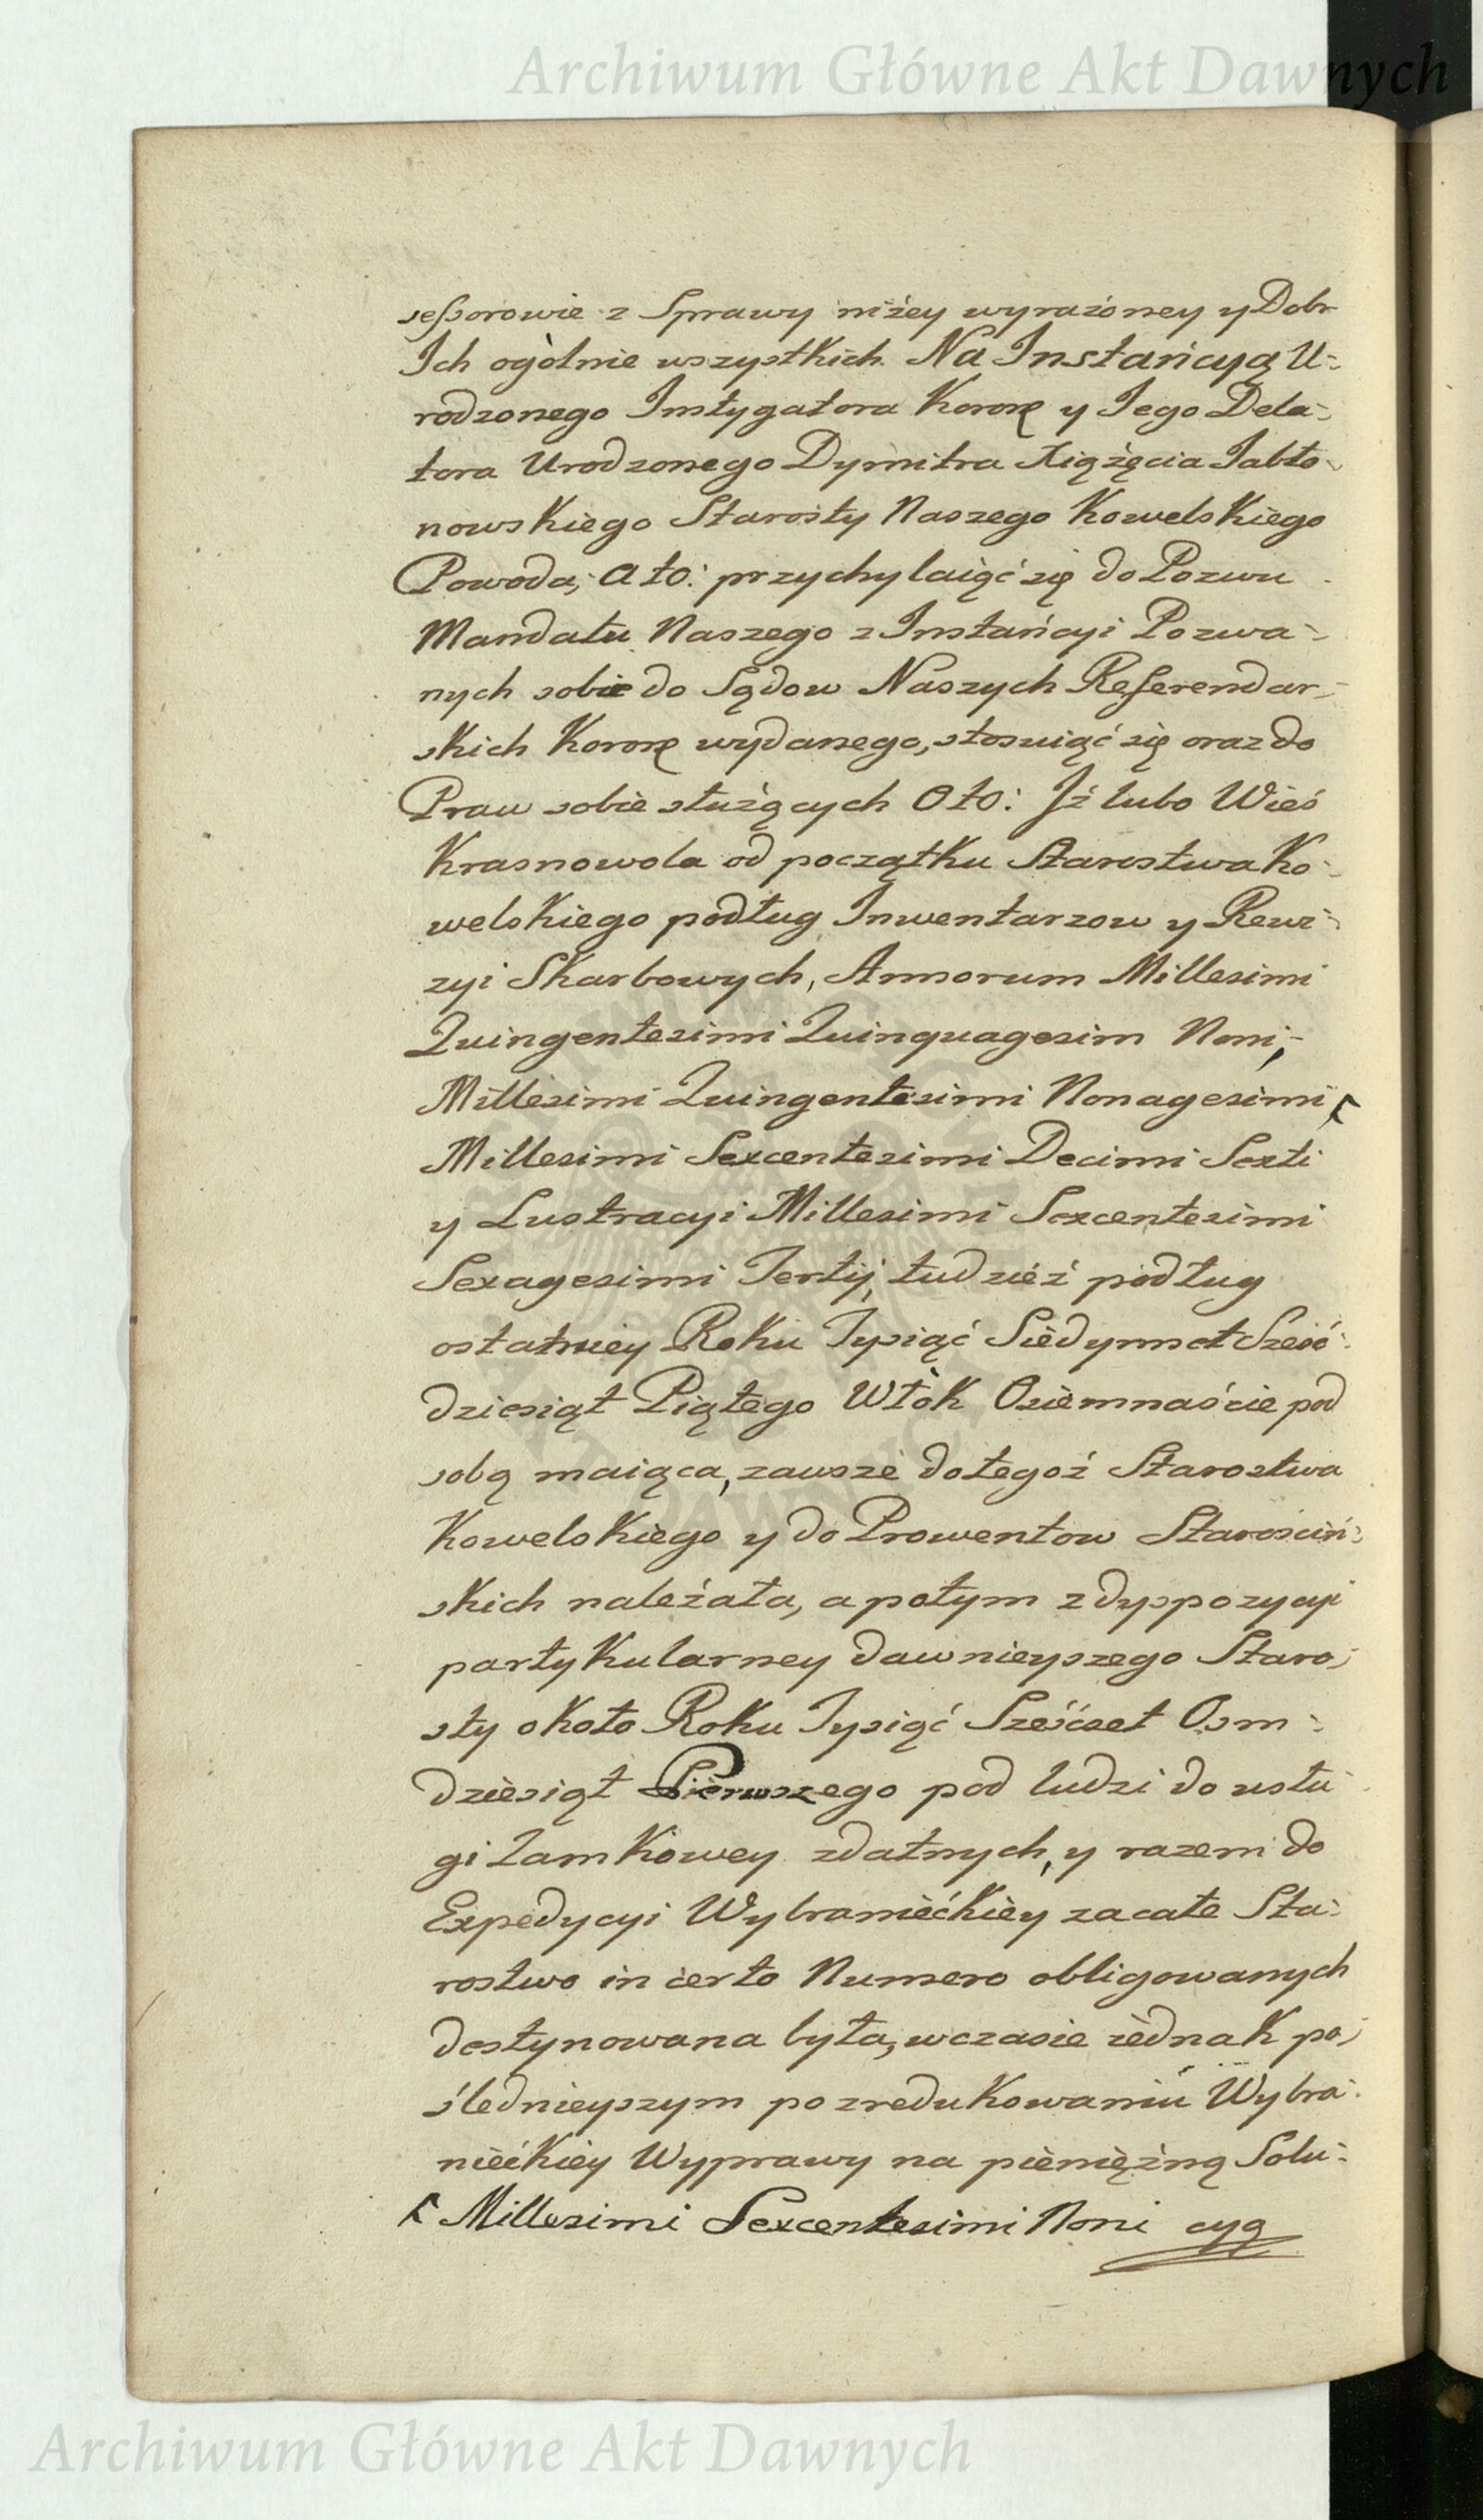 Archiwum Główne Akt Dawnych
seſsorowie z Sprawy niżey wyrażoney y Dobr
Ich ogòlnie wszystkich. Na Instańcyą U-
rodzonego Instygatora Koron̄ y Iego Dela-
tora Urodzonego Dymitra Xiążęcia Jabło-
nowskiego Starosty Naszego Kowelskiego
Powoda; a to: przychylaiąć się do Pozwu
Mandatu Naszego z Instańcyi Pozwa-
nych sobie do Sądow Naszych Referendar-
skich Koron̄ wydanego, stosuiąć się oraz do
Praw sobie służących Oto: Iż lubo Wieś
Krasnowola od początku Starostwa Ko-
welskiego podług Inwentarzow y Rewi-
zyi Skarbowych, Annorum Millesimi
Quingentesimi Quinquagesim Noni,-
Millesimi Quingentesimi Nonagesimi ꓩ
Millesimi Sexcentesimi Decimi Sexti
y Lustracyi Millesimi Sexcentesimi
Sexagesimi Tertij, tudzież podług
ostatniey Roku Tysiąć Siedymset Sześć-
dziesiąt Piątego Włòk Osiemnaście pod
sobą maiąca, zawsze do tegoż Starostwa
Kowelskiego y do Prowentow Starościń-
skich należała, a potym z dyspozycyi
partykularney dawnieyszego Staro-
sty około Roku Tysiąć Sześćset Osm-
dziesiąt Pierwszego pod ludzi do usłu-
gi Zamkowey zdatnych, y razem do
Expedycyi Wybraniećkiey za całe Sta-
rostwo in certo Numero obligowanych
destynowana była, w czasie iednak po-
ślednieyszym po zredukowaniu Wybra-
niećkiey Wyprawy na pienięźną Solu-
ꓩ Millesimi Sexcentesimi Noni cyą
Archiwum Główne Akt Dawnych